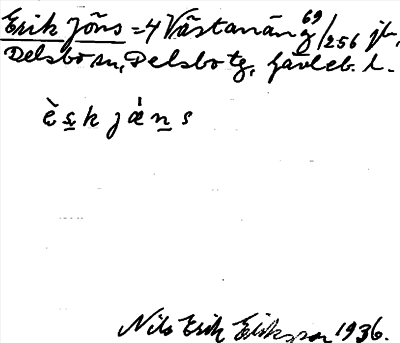 Erik Jöns = 4 Västanån 69 g/256 jb,
Delsbo sn, Delsbo tg, Gävleb. l.
è s̲ k j ǽ n̲ s
Nils Erik Eriksson 1936.